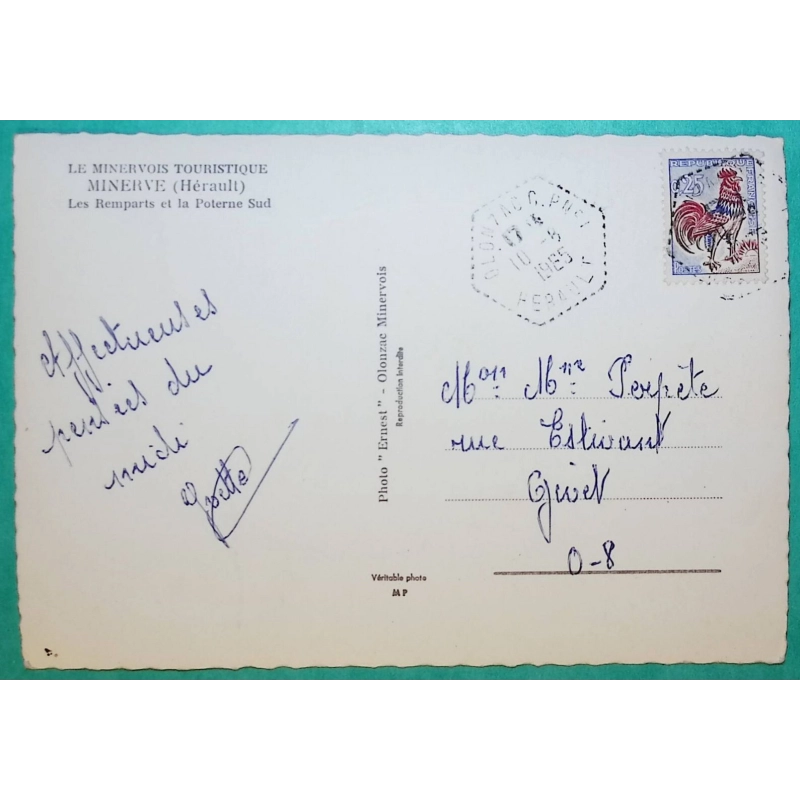 LE MINERVOIS TOURISTIQUE
MINERVE (Hérault)
Les Remparts et la Poterne Sud
Affectueuses
pensées du
midi
Yvette
Photo " Ernest " - Olonzac Minervois
Reproduction interdite
Véritable photo
MP
OLONZAC C. P
10 - 8
1965
HERAULT
REPUBLIQUE FRANCAISE
0,25
Mon Mme Perpète
rue Estivant
Givet
0-8